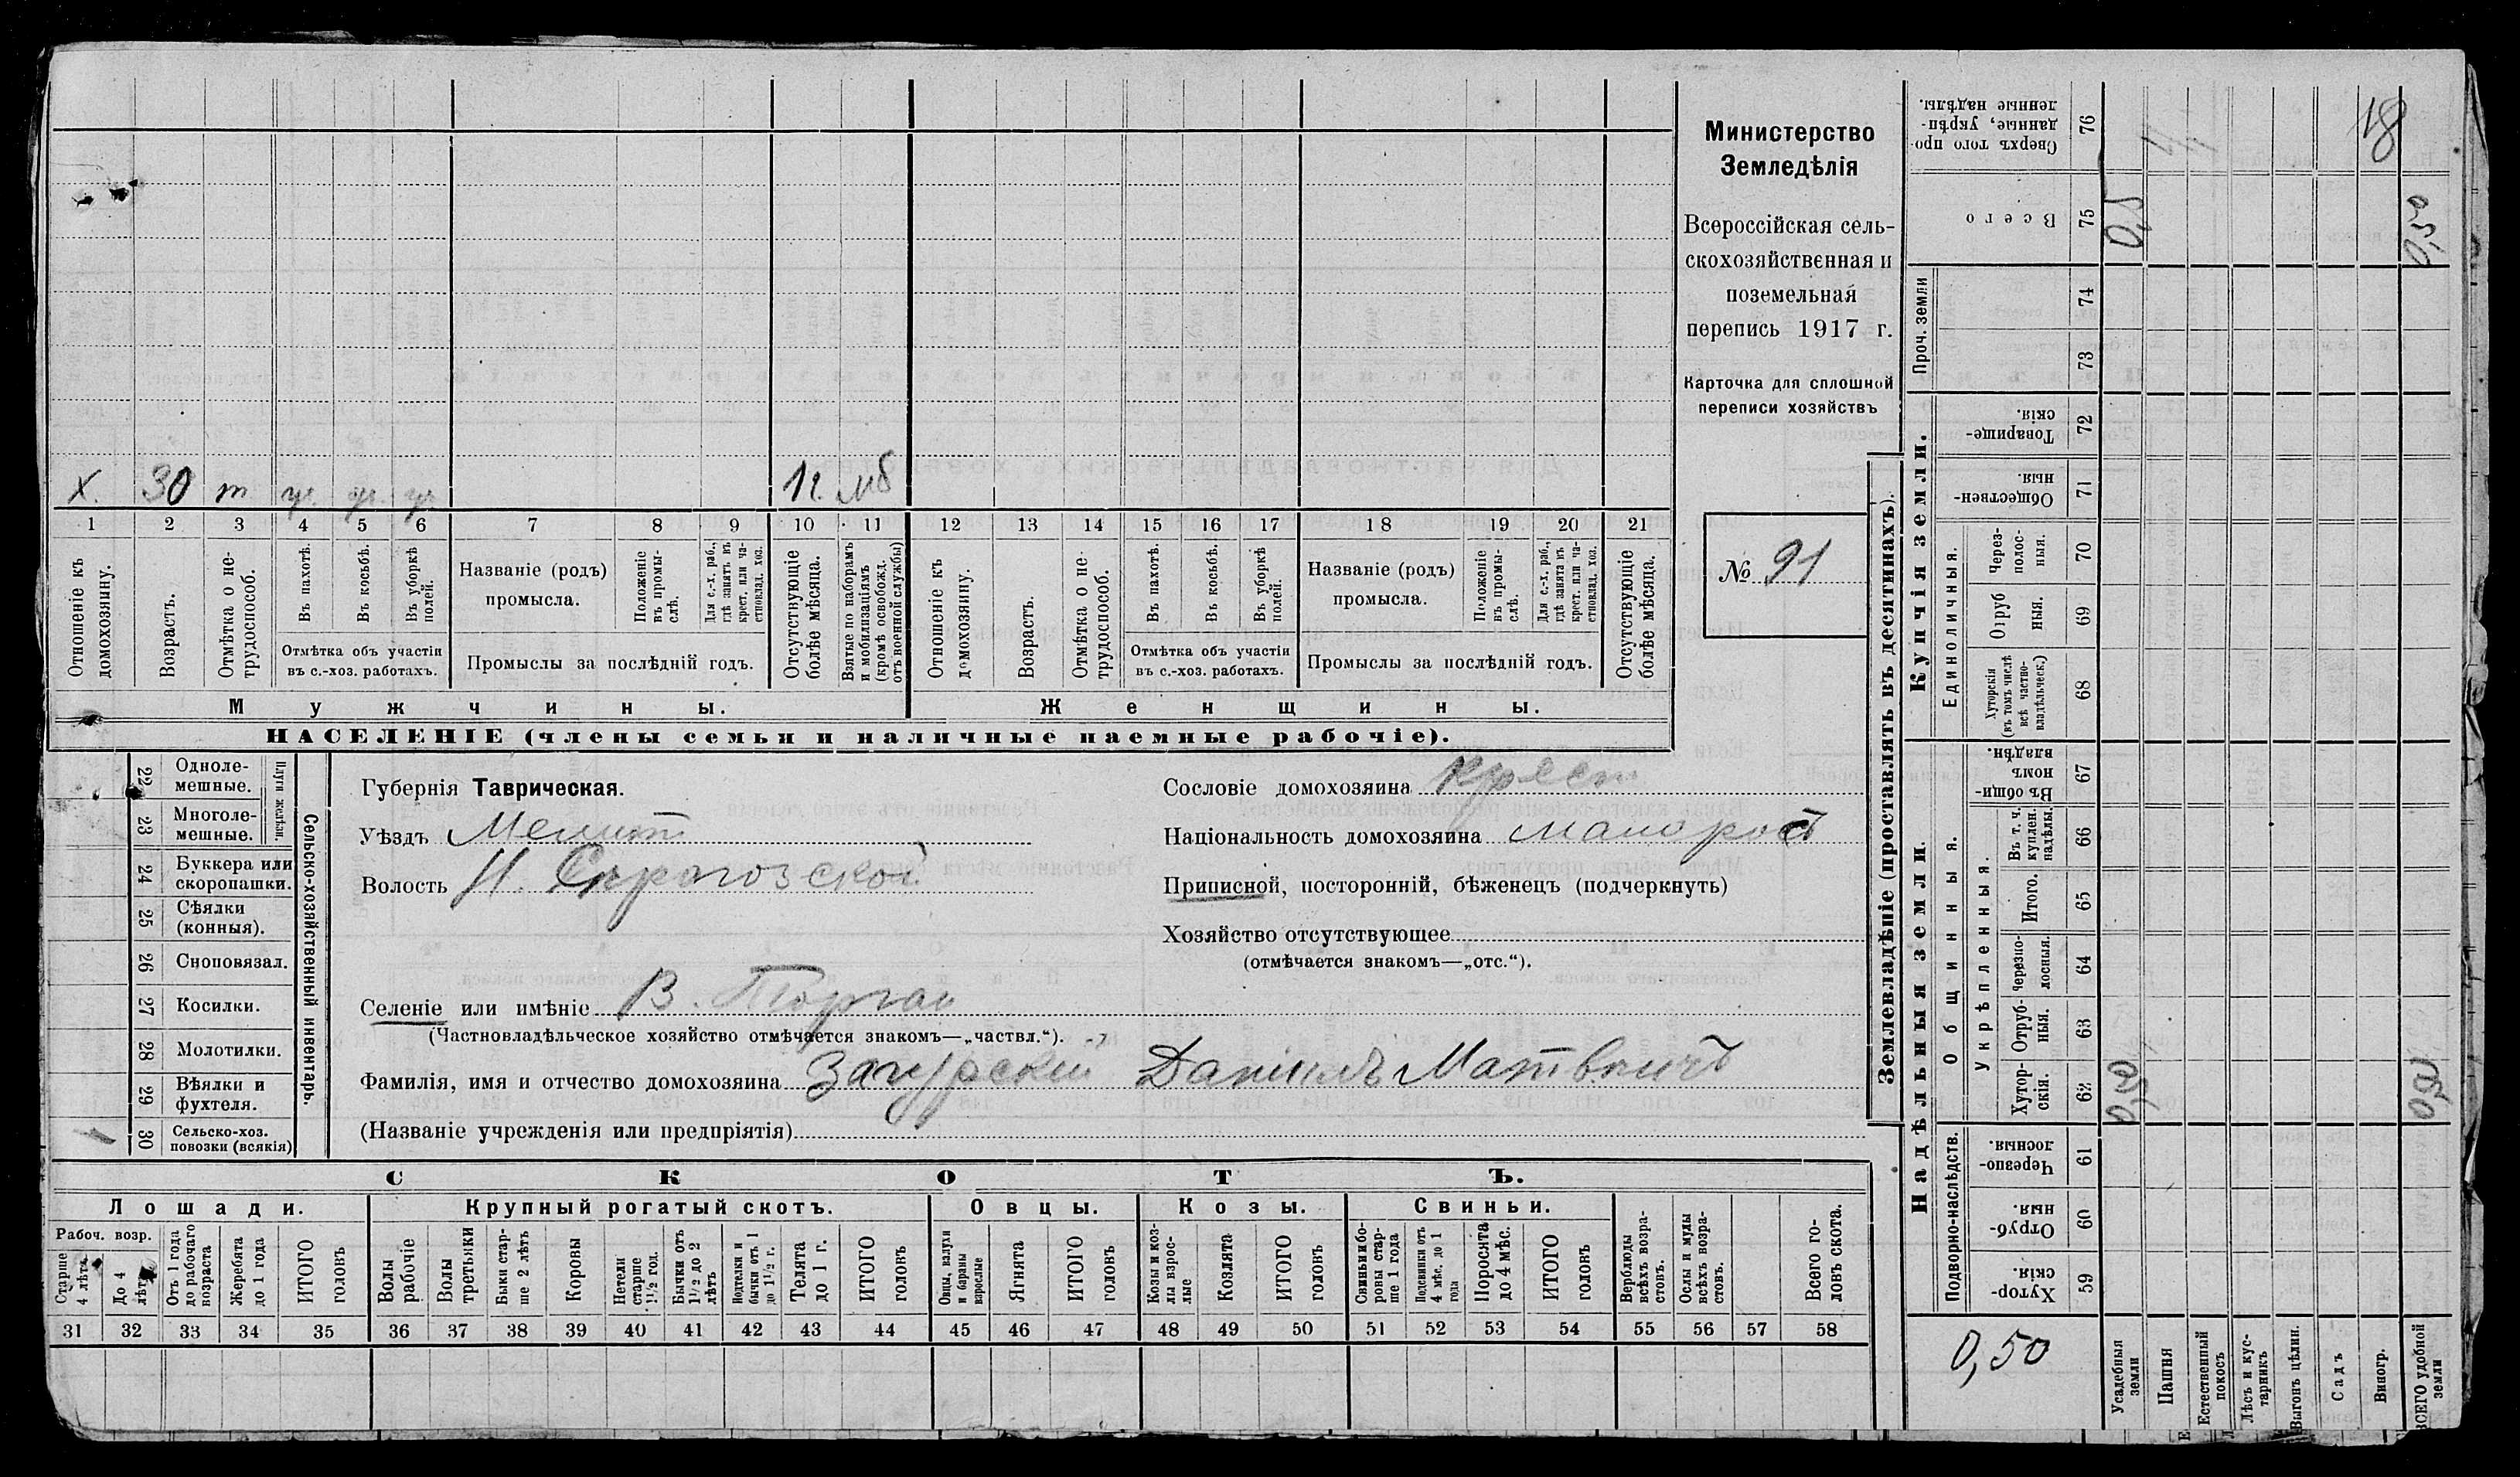 Министерство
Земледѣлія
Всероссійская сель-
скохозяйственная и
поземельная
перепись 1917 г.
Карточка для сплошной
переписи хозяйствъ
№ 91
Х. 30 т 1 г. мб
1 2 3 4 5 6 7 8 9 10 11 12 13 14 15 16 17 18 19 20 21
Отношеніе къ домохозяину.
Возрастъ.
Отмѣтка о не-трудоспособ.
Въ пахотѣ.
Въ косьбѣ.
Въ уборкѣ полей.
Отмѣтка объ участіи
въ с.-хоз. работахъ.
Названіе (родъ)
промысла.
Положеніе въ промы-слѣ.
Для с.-х. раб., гдѣ занятъ въ крест. или ча-стновлад. хоз.
Промыслы за послѣдній годъ.
Отсутствующіе болѣе мѣсяца.
Взятые по наборамъ и мобилизаціямъ (кромѣ освобожд. отъ военной службы)
Отношеніе къ домохозяину.
Возрастъ.
Отмѣтка о не-трудоспособ.
Въ пахотѣ.
Въ косьбѣ.
Въ уборкѣ полей.
Отмѣтка объ участіи
въ с.-хоз. работахъ.
Названіе (родъ)
промысла.
Положеніе въ промы-слѣ.
Для с.-х. раб., гдѣ занята въ крест. или ча-стновлад. хоз.
Промыслы за послѣдній годъ.
Отсутствующіе болѣе мѣсяца.
Мужчины.
Женщины.
НАСЕЛЕНІЕ (члены семьи и наличные наемные рабочіе).
Сельско-хозяйственный инвентарь.
22 Одноле-мешные.
23 Многоле-мешные.
24 Буккера или скоропашки.
25 Сѣялки (конныя).
26 Сноповязал.
27 Косилки.
28 Молотилки.
29 Вѣялки и фухтеля.
30 Сельско-хоз. повозки (всякія)
Губернія Таврическая.
Уѣздъ Мелит
Волость Н. Сѣрогозской
Селеніе или имѣніе В. Торгаи
(Частновладѣльческое хозяйство отмѣчается знакомъ—„частвл.“).
Фамилія, имя и отчество домохозяина Загурскій Даніилъ Матвѣичъ
(Названіе учрежденія или предпріятія)
Сословіе домохозяина Крест
Національность домохозяина малорос
Приписной, посторонній, бѣженецъ (подчеркнуть)
Хозяйство отсутствующее
(отмѣчается знакомъ—„отс.“).
СКОТЪ.
Лошади. Крупный рогатый скотъ. Овцы. Козы. Свиньи.
Рабоч. возр.
Старше 4 лѣтъ
До 4 лѣтъ
Отъ 1 года до рабочаго возраста
Жеребята до 1 года
ИТОГО головъ
Волы рабочіе
Волы третьяки
Быки стар-ше 2 лѣтъ
Коровы
Нетели старше 1½ год.
Бычки отъ 1½ до 2 лѣтъ
Подтелки и бычки отъ 1 до 1½ г.
Телята до 1 г.
ИТОГО головъ
Овцы, валухи и бараны взрослые
Ягнята
ИТОГО головъ
Козы и коз-лы взрос-лые
Козлята
ИТОГО головъ
Свиньи и бо-ровы стар-ше 1 года
Подсвинки отъ 4 мѣс. до 1 года
Поросята до 4 мѣс.
ИТОГО головъ
Верблюды всѣхъ возра-стовъ.
Ослы и мулы всѣхъ возра-стовъ.
Всего го-ловъ скота.
31 32 33 34 35 36 37 38 39 40 41 42 43 44 45 46 47 48 49 50 51 52 53 54 55 56 57 58
Землевладѣніе (проставлять въ десятинахъ).
Надѣльныя земли.
Купчія земли.
Проч. земли
Подворно-наслѣдств.
Общинныя.
Укрѣпленныя.
Единоличныя.
76 Сверхъ того про-данные, укрѣп-ленные надѣлы.
75 Всего
74
73
72 Товарище-скія.
71 Обществен-ныя
70 Через-полос-ныя.
69 Отруб-ныя.
68 Хуторскія (въ томъ числѣ всѣ частно-владѣльческ.)
67 Въ общин-номъ владѣн.
66 Въ т. ч. куплен. надѣлы.
65 Итого.
64 Черезпо-лосныя.
63 Отруб-ныя.
62 Хутор-скія.
61 Черезпо-лосныя.
60 Отруб-ныя.
59 Хутор-скія.
18
0,5
0,50
0,50
0,50
0,50
Усадебныя земли
Пашня
Естественный покосъ
Лѣсъ и кус-тарникъ
Выгонъ цѣлин.
Садъ
Виногр.
ВСЕГО удобной земли